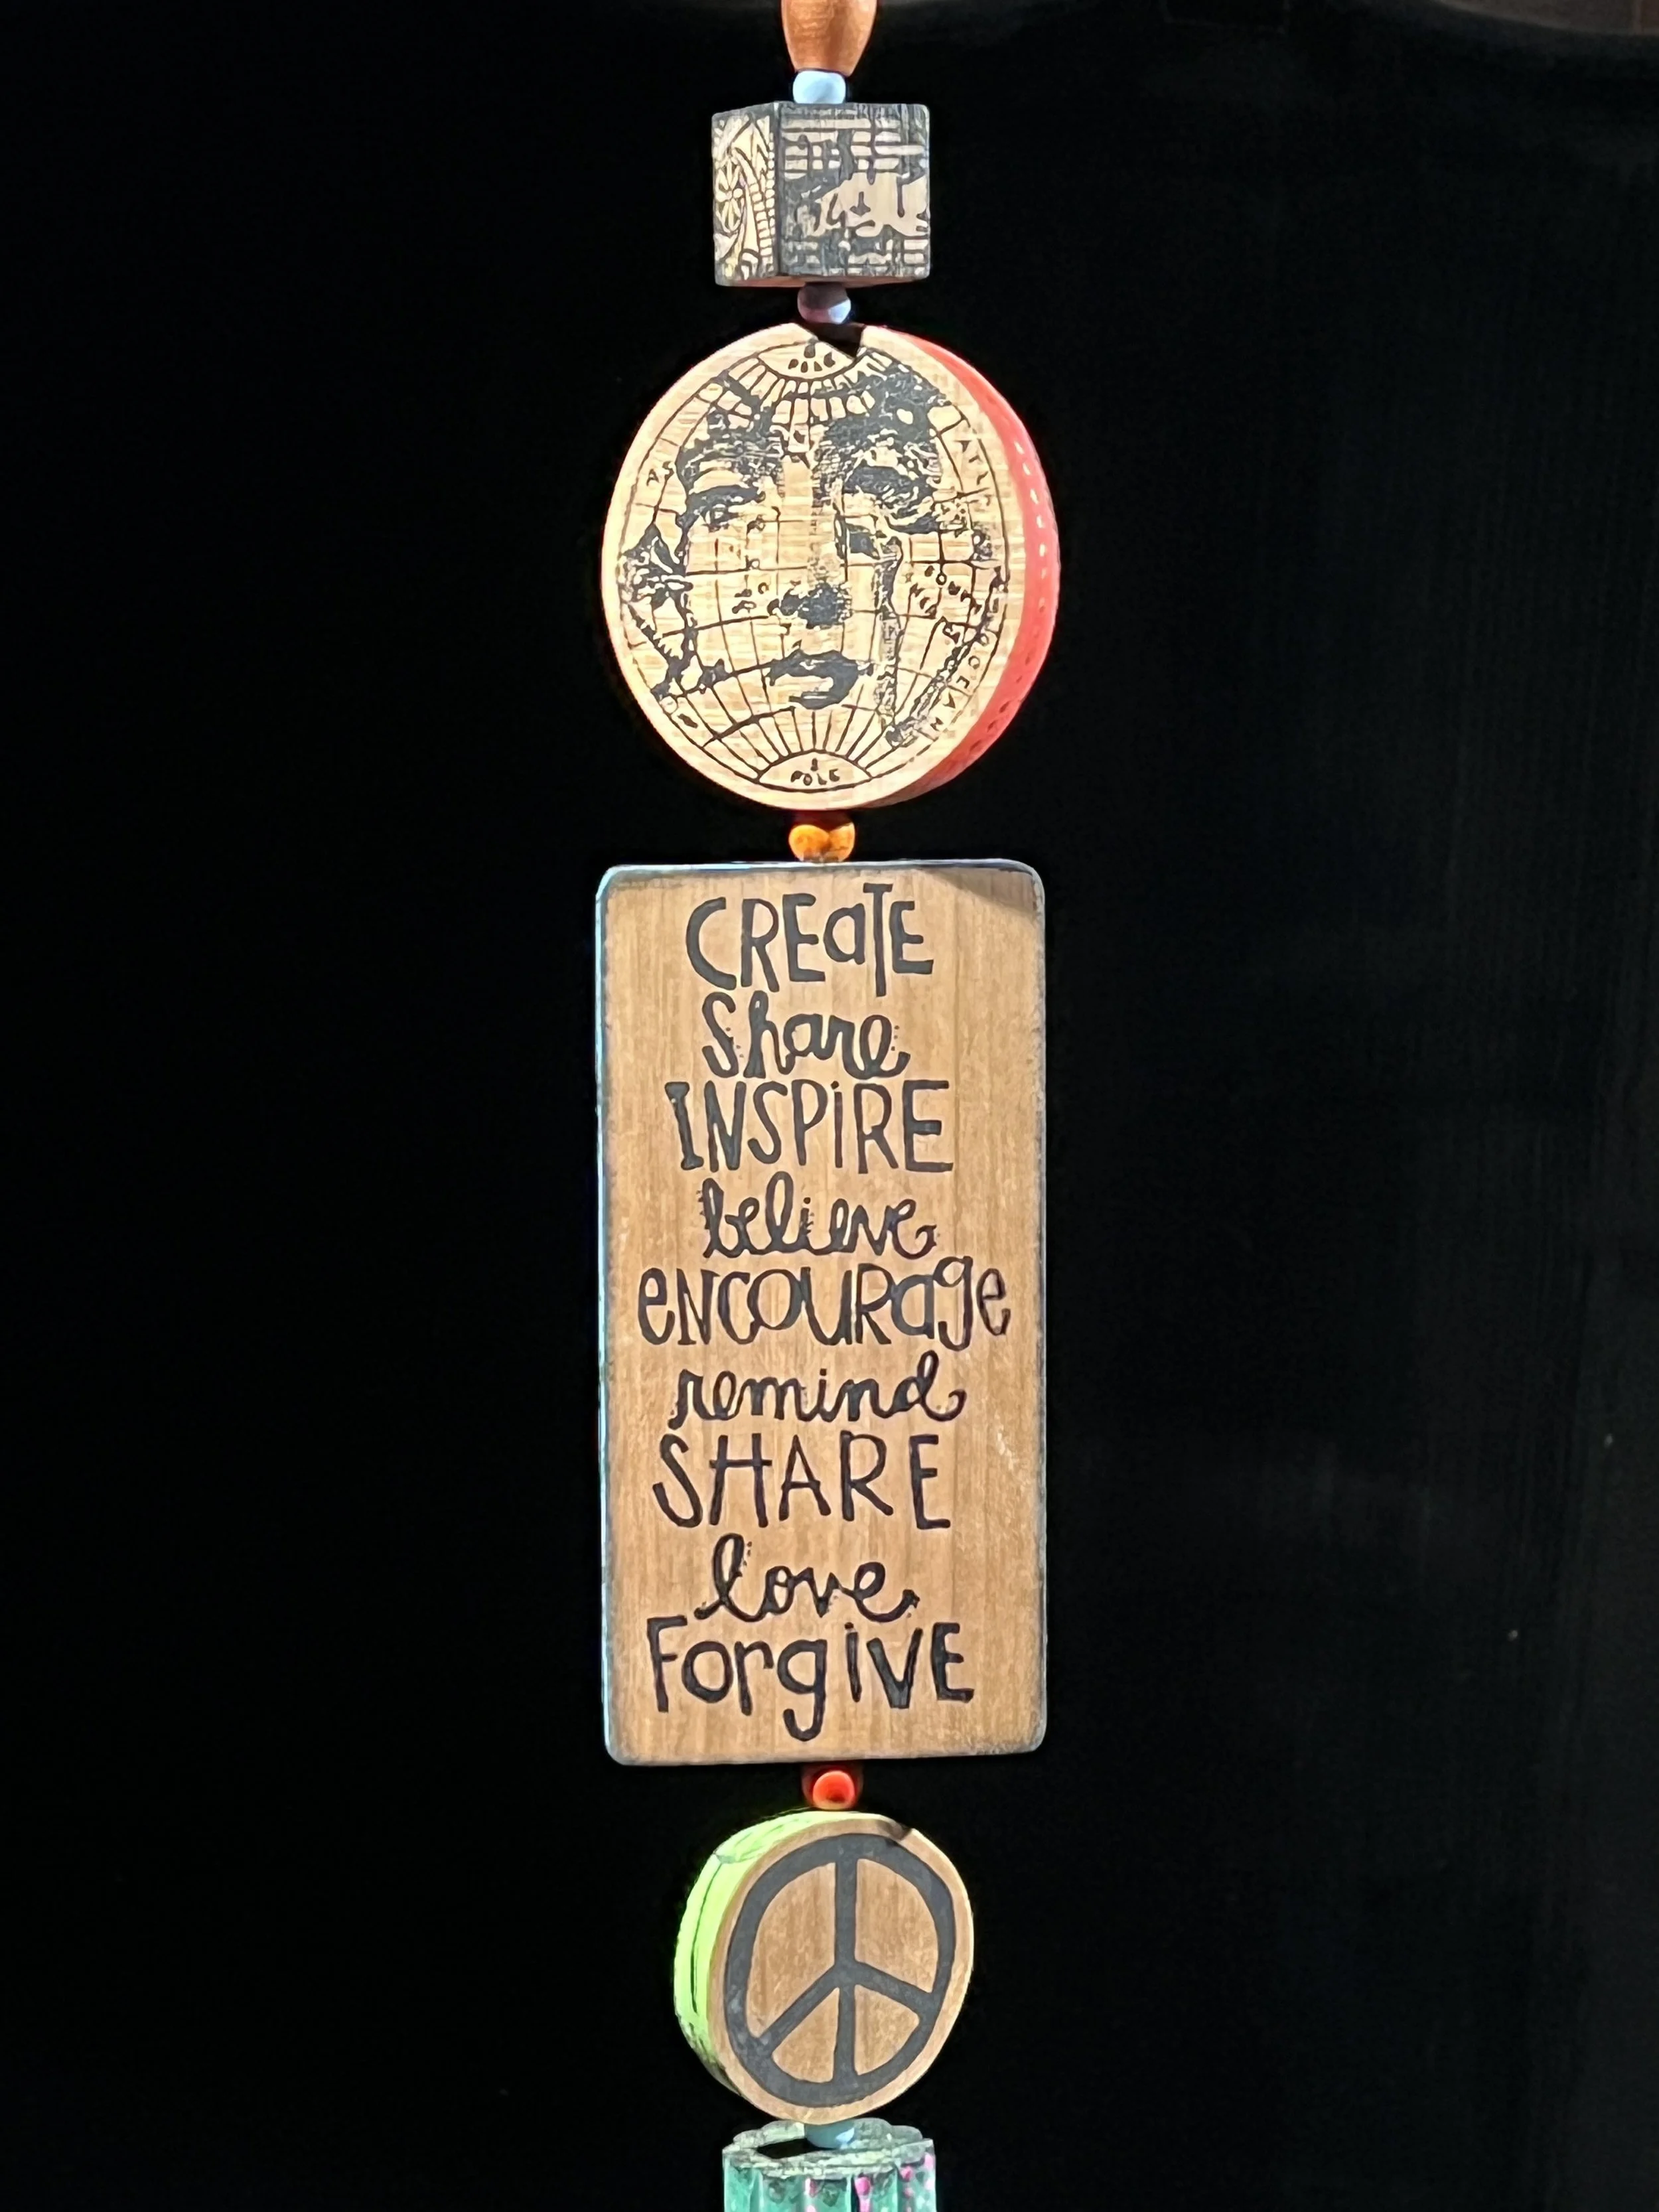 POLE
OCEAN
POLE
CREaTE
Share
INSPiRE
believe
eNCOURage
remind
SHARE
love
ForgiVE